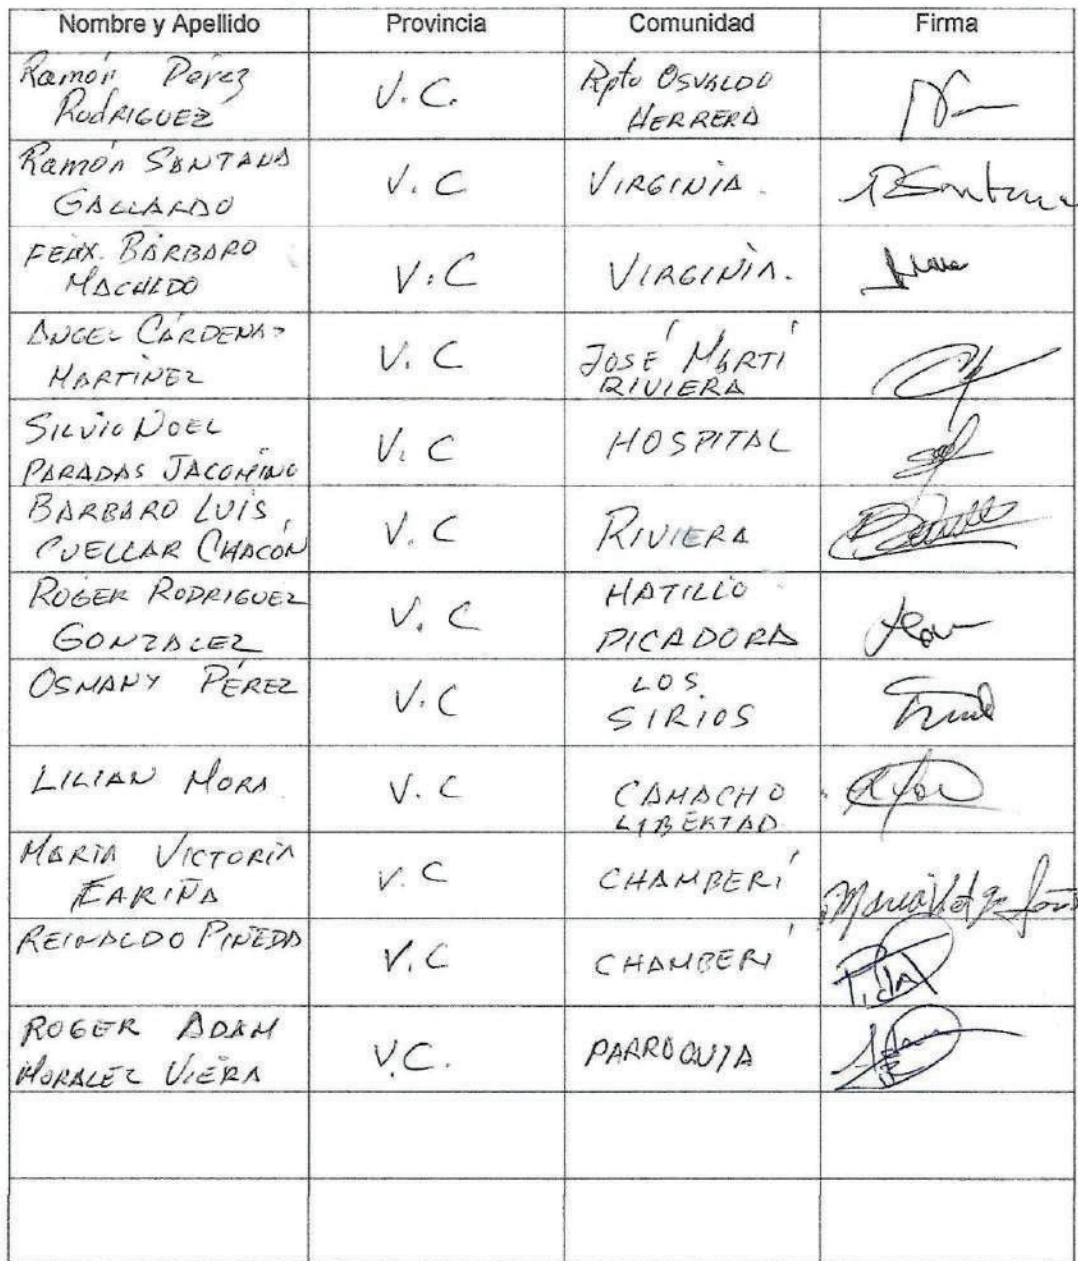 Nombre y Apellido Provincia Comunidad Firma
Ramón Pérez
Rodriguez V.C. Rpto Osvaldo
Herrera
Ramón Santana
Gallardo V.C Virginia. RSantana
Felix. Bárbaro
Machado V.C Virginia.
Angel Cárdenas
Martinez V.C José Martí
Riviera
Silvio Noel
Paradas Jacomino V.C Hospital
Barbaro Luis
Cuellar Chacón V.C Riviera
Roger Rodriguez
Gonzalez V.C Hatillo
Picadora
Osmany Pérez V.C Los
Sirios
Lilian Mora V.C Camacho
Libertad
Maria Victoria
Fariña V.C Chamberí
Reinaldo Pineda V.C Chamberí
Roger Adam
Moralez Viera V.C. Parroquia